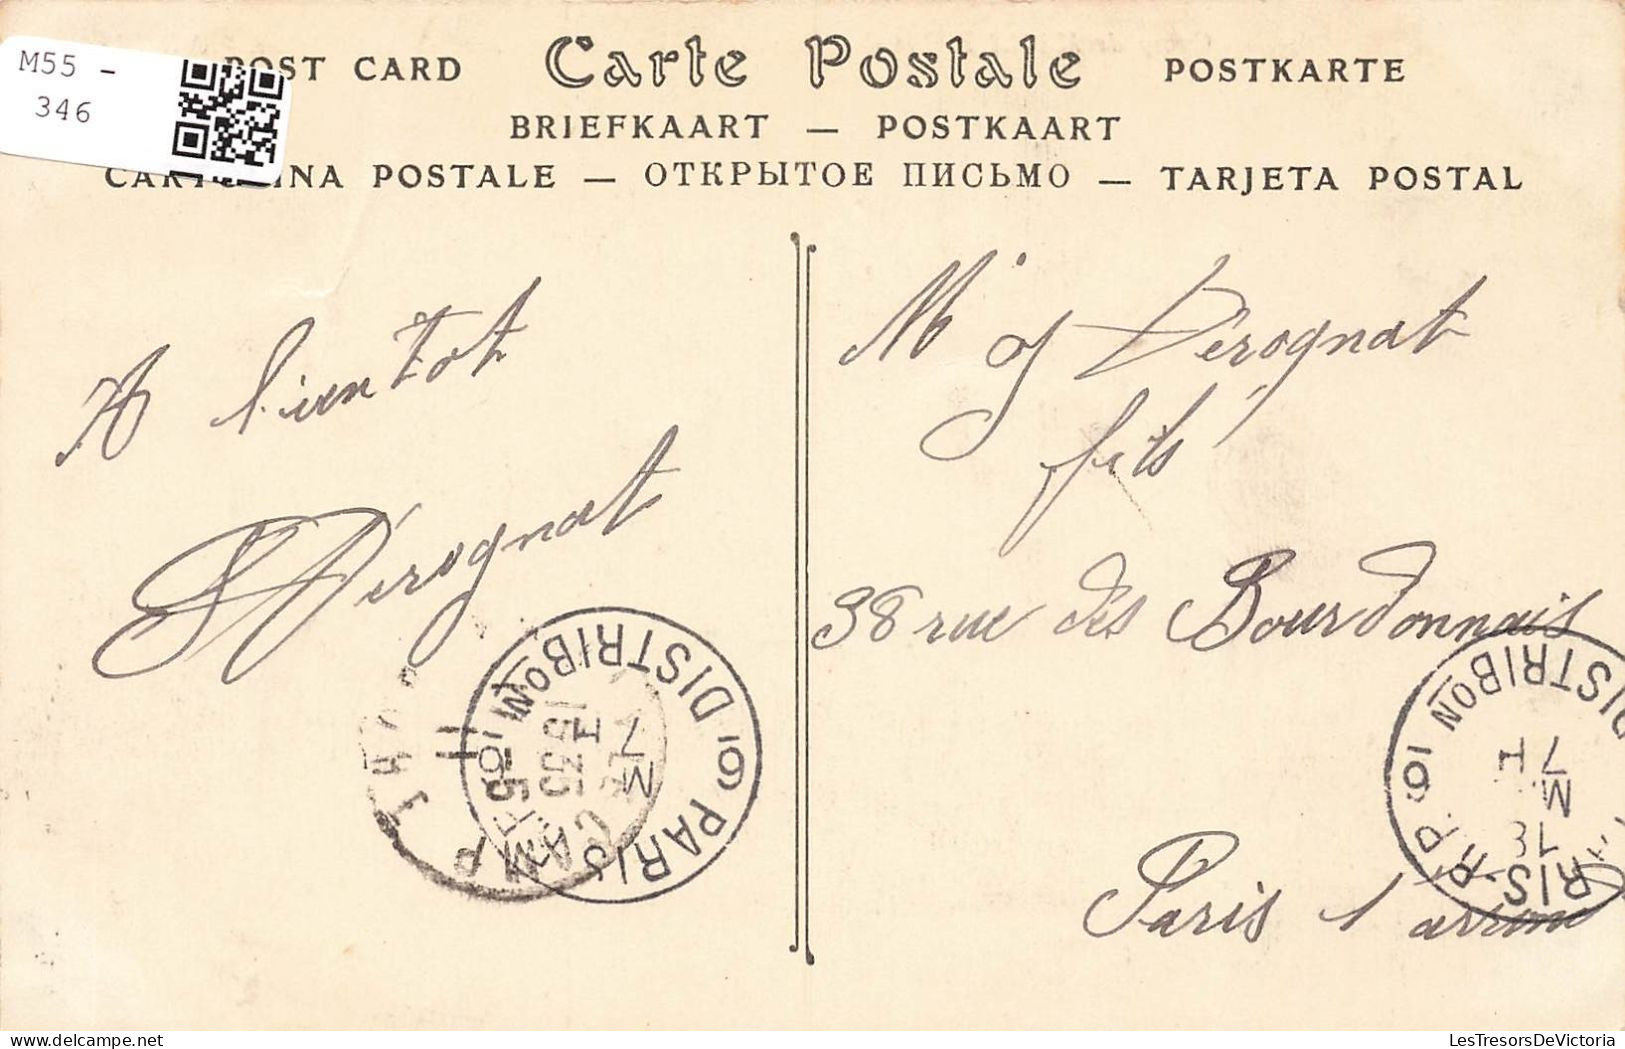 M55 -
346
POST CARD Carte Postale POSTKARTE
BRIEFKAART — POSTKAART
CARTOLINA POSTALE — ОТКРЫТОЕ ПИСЬМО — TARJETA POSTAL
A bientot
Dérognat
Mr J Dérognat
fils
38 rue des Bourdonnais
Paris 1 arron
PARIS DISTRIBON
16
7H
M
RIS R.P. DISTRIBON
16
7H
M
LesTresorsDeVictoria